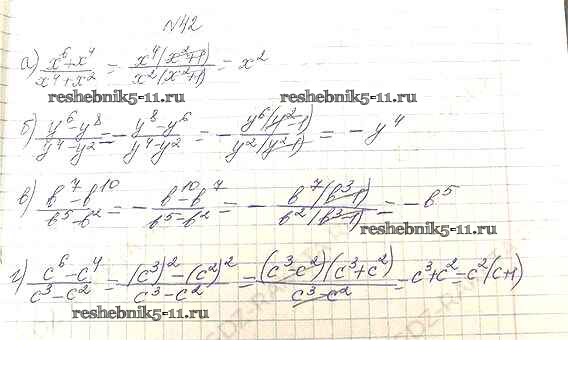 №42
а) x⁶+x⁴ / x⁴+x² = x⁴(x²+1) / x²(x²+1) = x²
reshebnik5-11.ru reshebnik5-11.ru
б) y⁶-y⁸ / y⁴-y² = - y⁸-y⁶ / y⁴-y² = - y⁶(y²-1) / y²(y²-1) = - y⁴
в) b⁷-b¹⁰ / b⁵-b² = - b¹⁰-b⁷ / b⁵-b² = - b⁷(b³-1) / b²(b³-1) = - b⁵
reshebnik5-11.ru
г) c⁶-c⁴ / c³-c² = (c³)²-(c²)² / c³-c² = (c³-c²)(c³+c²) / c³-c² = c³+c² = c²(c+1)
reshebnik5-11.ru